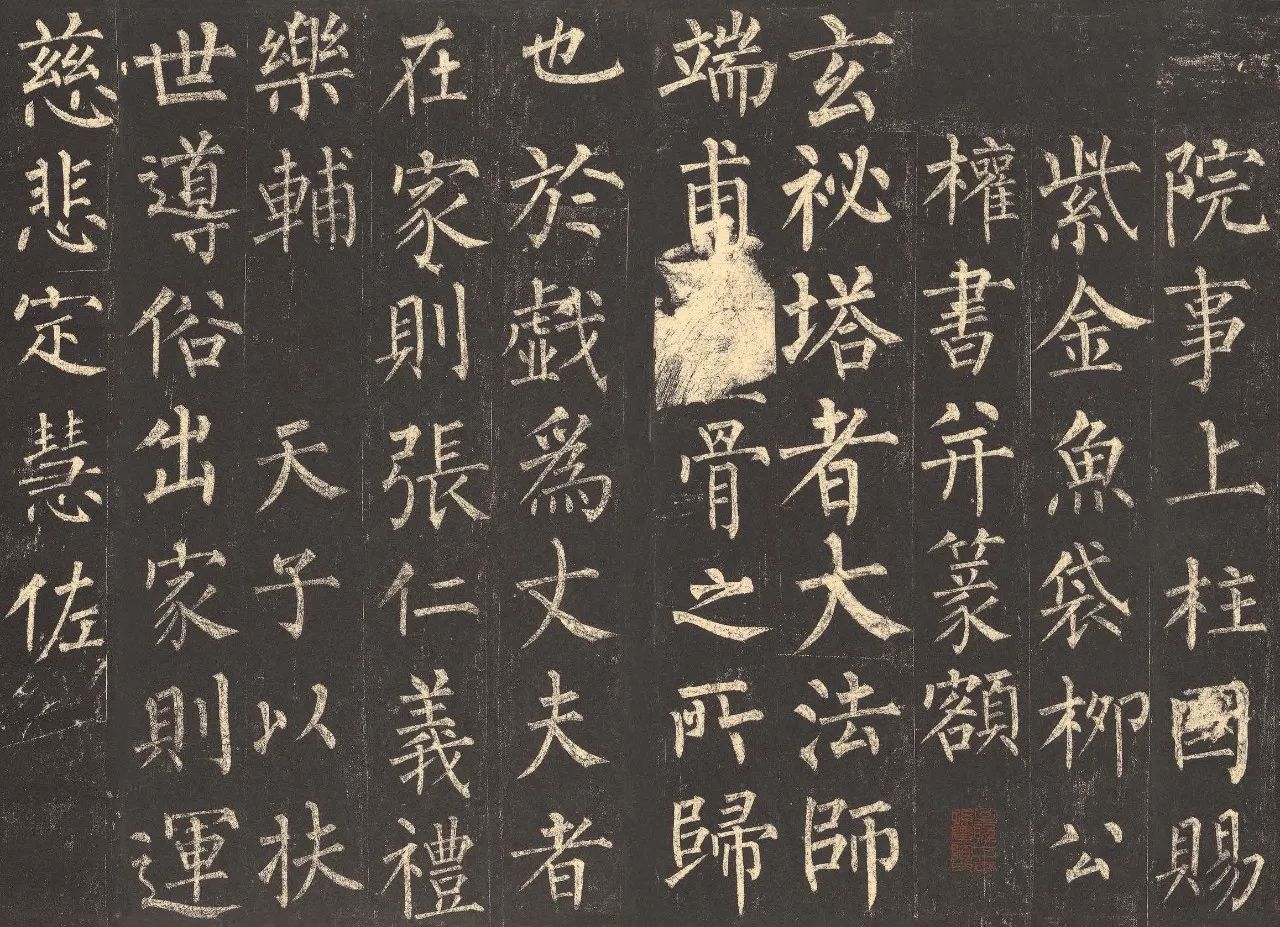 院事上柱國賜
紫金魚袋柳公
權書并篆額
玄祕塔者大法師
端甫骨之所歸
也於戲爲丈夫者
在家則張仁義禮
樂輔 天子以扶
世導俗出家則運
慈悲定慧佐